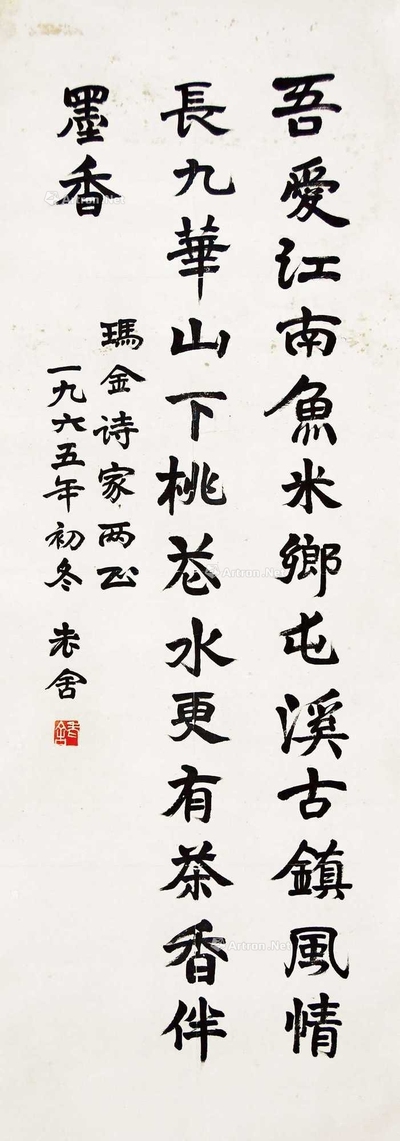 吾愛江南魚米鄉屯溪古鎮風情
長九華山下桃花水更有茶香伴
墨香
瑪金诗家两正
一九六五年初冬 老舍
老舍
Artron.Net
Artron.Net
Artron.Net
Artron.Net
Artron.Net